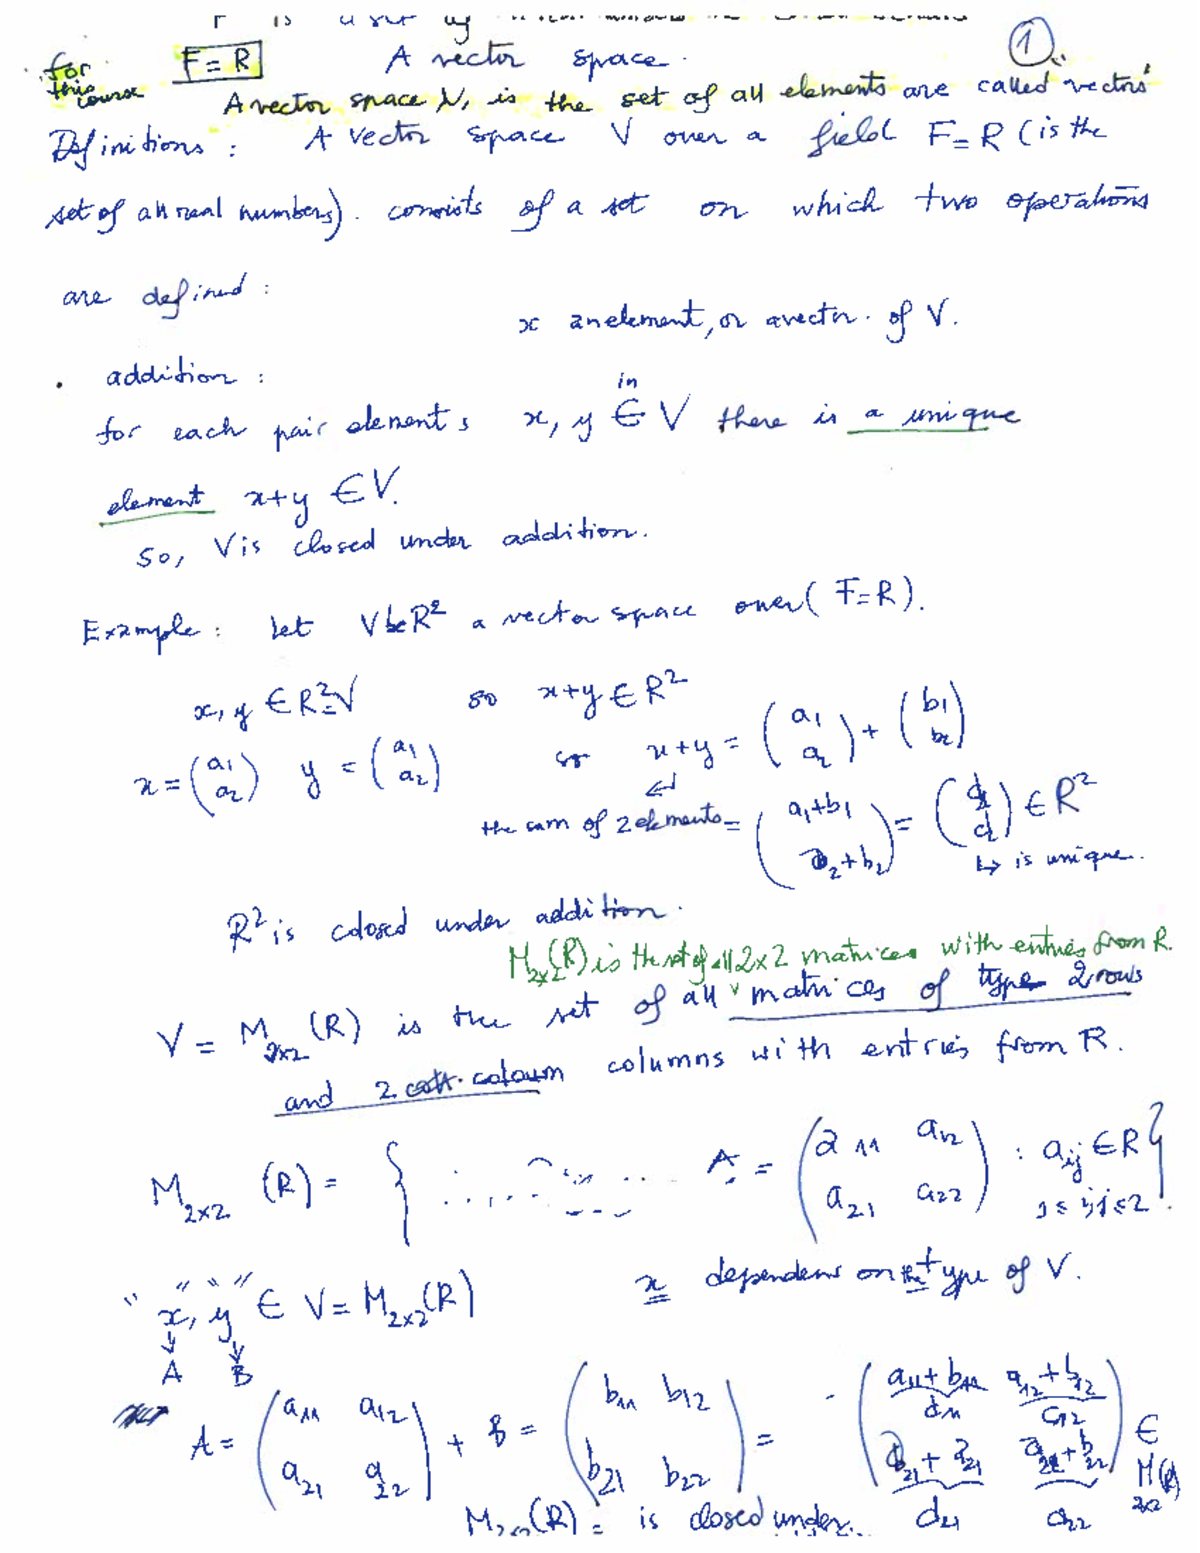 F is a set of
for this course F=R A vector space. 1
A vector space V, is the set of all elements are called vectors
Definitions: A vector space V over a field F=R (is the
set of all real numbers). consists of a set on which two operations
are defined:
x an element, or a vector of V.
. addition:
in
for each pair elements x, y ∈ V there is a unique
element x+y ∈ V.
So, V is closed under addition.
Example: Let V be R² a vector space over (F=R).
x, y ∈ R²=V so x+y ∈ R²
x = (a₁ a₂) y = (a₁ a₂) so x+y = (a₁ a₂) + (b₁ b₂)
the sum of 2 elements = (a₁+b₁ a₂+b₂) = (d₁ d₂) ∈ R²
↳ is unique.
R² is closed under addition.
M₂ₓ₂(R) is the set of all 2x2 matrices with entries from R.
V = M₂ₓ₂(R) is the set of all matrices of type 2 rows
and 2 columns with entries from R.
M₂ₓ₂(R) = { A = (a₁₁ a₁₂ a₂₁ a₂₂) : aᵢⱼ ∈ R }
1 ≤ i,j ≤ 2
x dependens on the type of V.
"x, y" ∈ V = M₂ₓ₂(R)
A B
A = (a₁₁ a₁₂ a₂₁ a₂₂) + B = (b₁₁ b₁₂ b₂₁ b₂₂) = (a₁₁+b₁₁ a₁₂+b₁₂ b₂₁+a₂₁ a₂₂+b₂₂) ∈ M₂ₓ₂(R)
d₁₁ d₁₂
d₂₁ d₂₂
M₂ₓ₂(R) = is closed under